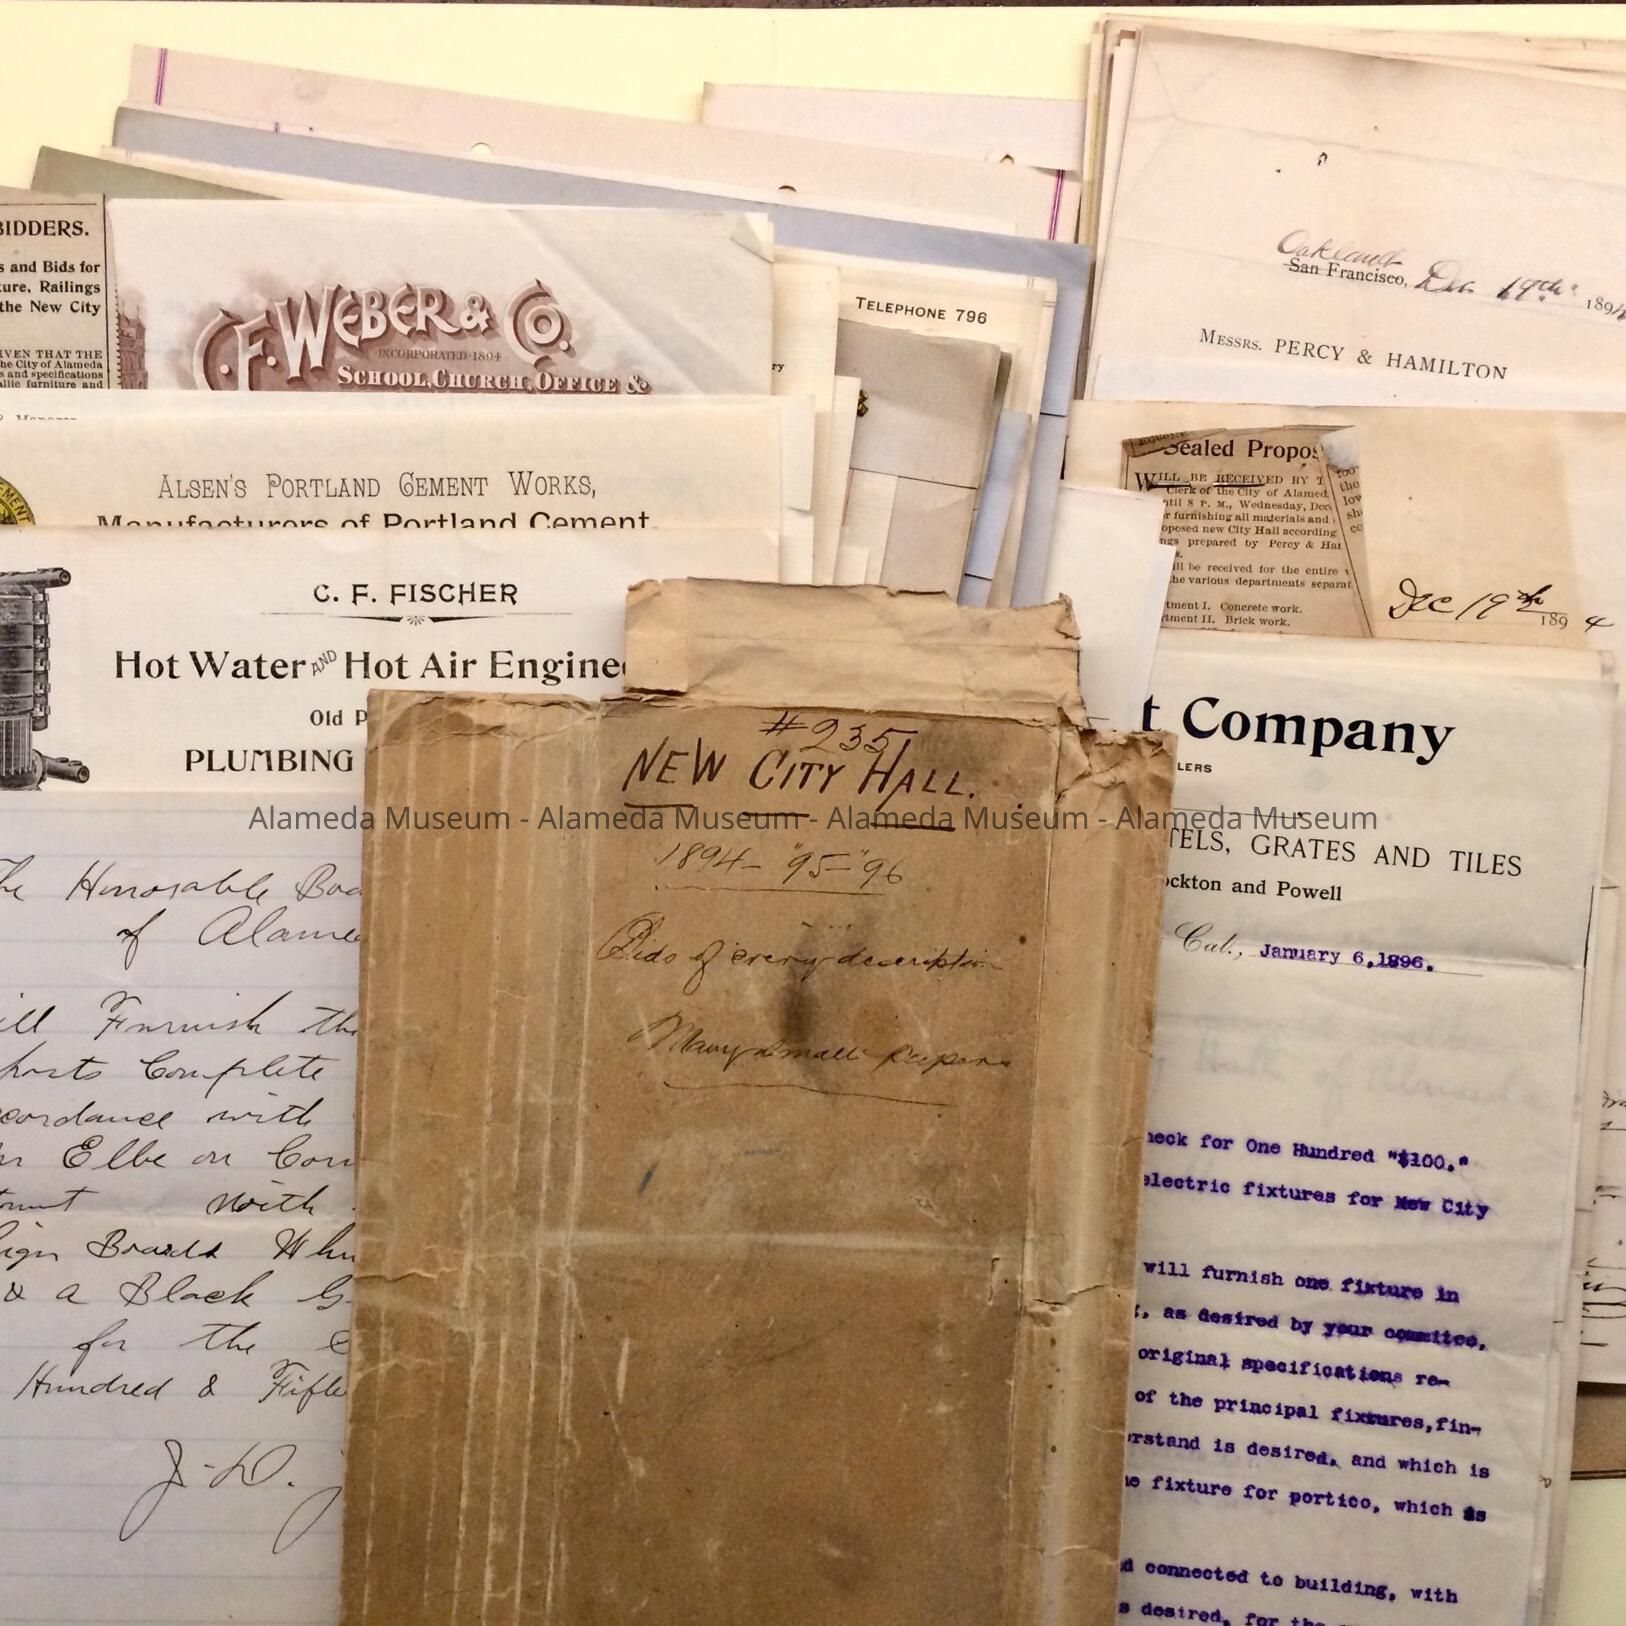 BIDDERS.
s and Bids for
ture, Railings
the New City
IVEN THAT THE
he City of Alameda
s and specifications
allic furniture and
C.F. WEBER & CO.
INCORPORATED 1894
SCHOOL, CHURCH, OFFICE &
TELEPHONE 796
Oakland
San Francisco, Dec 19th 1894
MESSRS. PERCY & HAMILTON
ALSEN'S PORTLAND CEMENT WORKS,
Manufacturers of Portland Cement
CEMENT
Sealed Propos
WILL BE RECEIVED BY T
Clerk of the City of Alamed
ntil 8 P. M., Wednesday, Dec
r furnishing all materials and
oposed new City Hall according
ngs prepared by Percy & Ha
s.
ill be received for the entire
he various departments separat
tment I. Concrete work.
tment II. Brick work.
too
the
lov
sh
Dec 19th 1894
C. F. FISCHER
Hot Water AND Hot Air Enginee
Old P
PLUMBING
#235
NEW CITY HALL.
1894-"95-"96
Bids of every description
Many small papers
Alameda Museum - Alameda Museum - Alameda Museum - Alameda Museum
he Honorable Boa
of Alame
ill Furnish the
Complete
cordance with
Elbe on Corn
with
ign Boards Whi
& a Black
for the
Hundred & Fifte
J. D.
t Company
LERS
TELS, GRATES AND TILES
ockton and Powell
Cal., January 6,1896.
heck for One Hundred "$100."
electric fixtures for New City
will furnish one fixture in
, as desired by your commitee,
original specifications re-
of the principal fixtures,fin-
rstand is desired, and which is
e fixture for portico, which is
d connected to building, with
s desired, for the